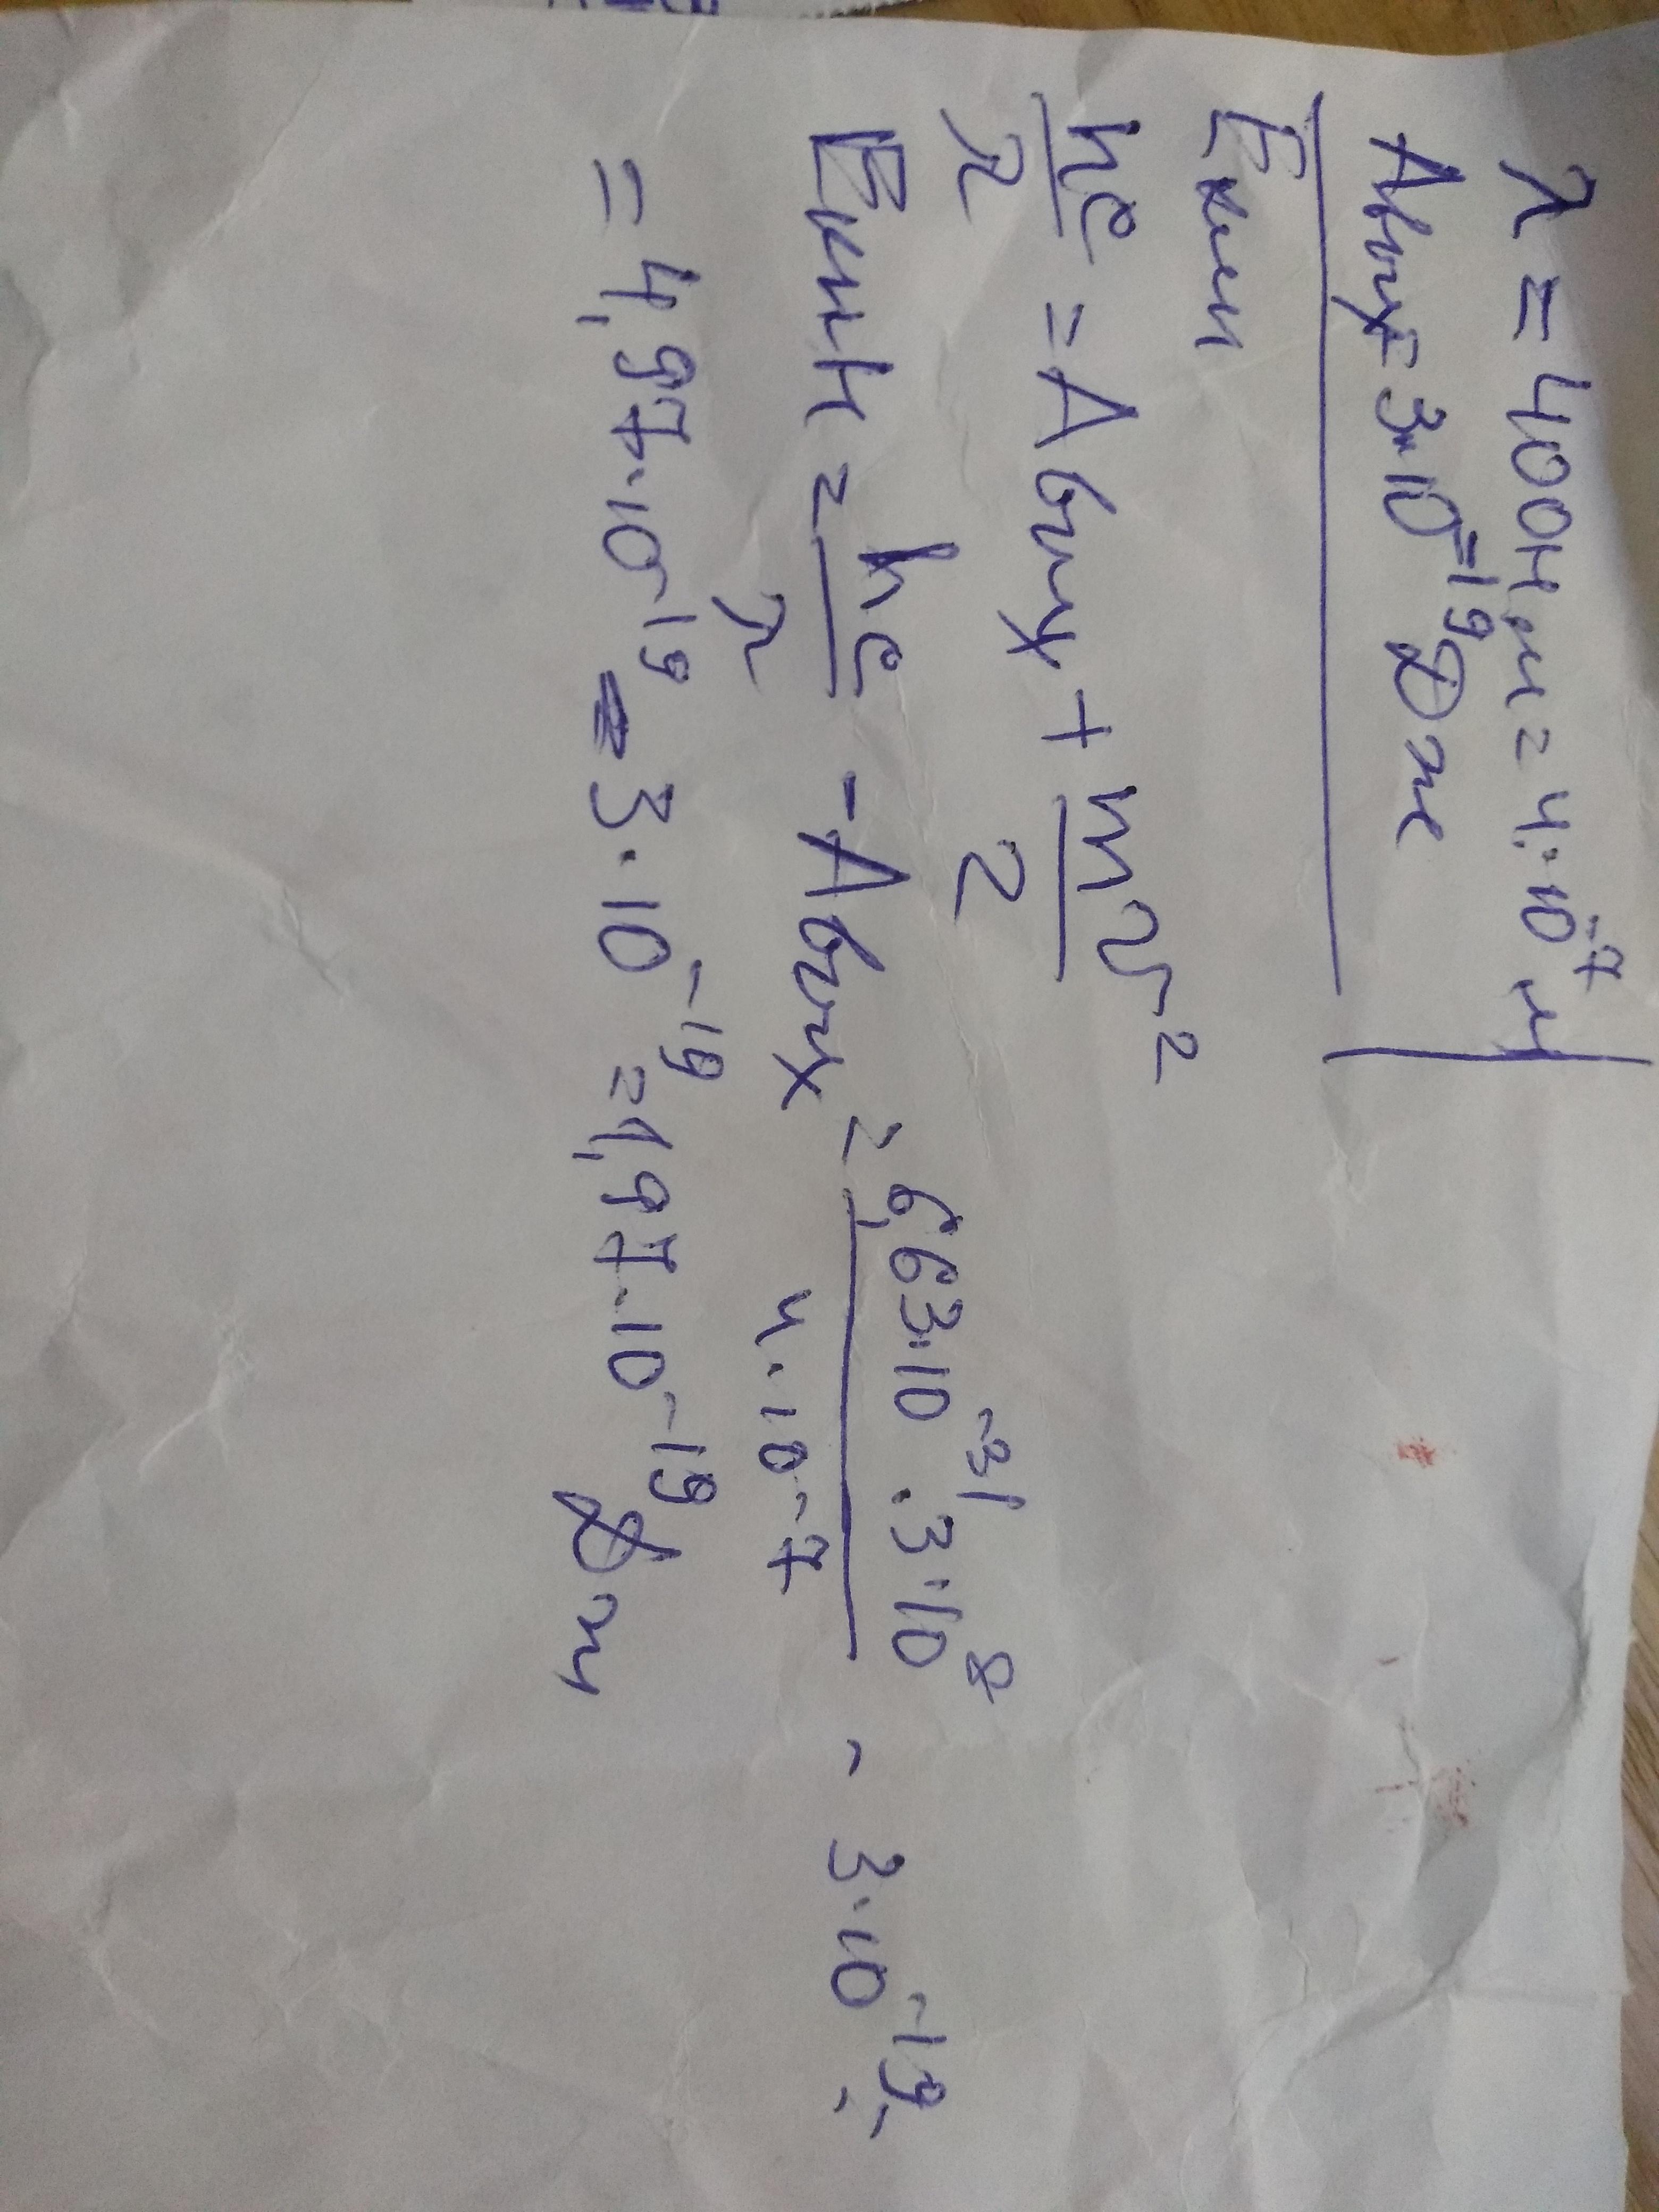 λ = 400нм = 4·10⁻⁷ м
Aвых = 3·10⁻¹⁹ Дж
Eкин
hc/λ = Aвых + mv²/2
Eкин = hc/λ - Aвых = 6,63·10⁻³¹·3·10⁸/4·10⁻⁷ - 3·10⁻¹⁹ =
= 4,97·10⁻¹⁹ - 3·10⁻¹⁹ = 1,97·10⁻¹⁹ Дж